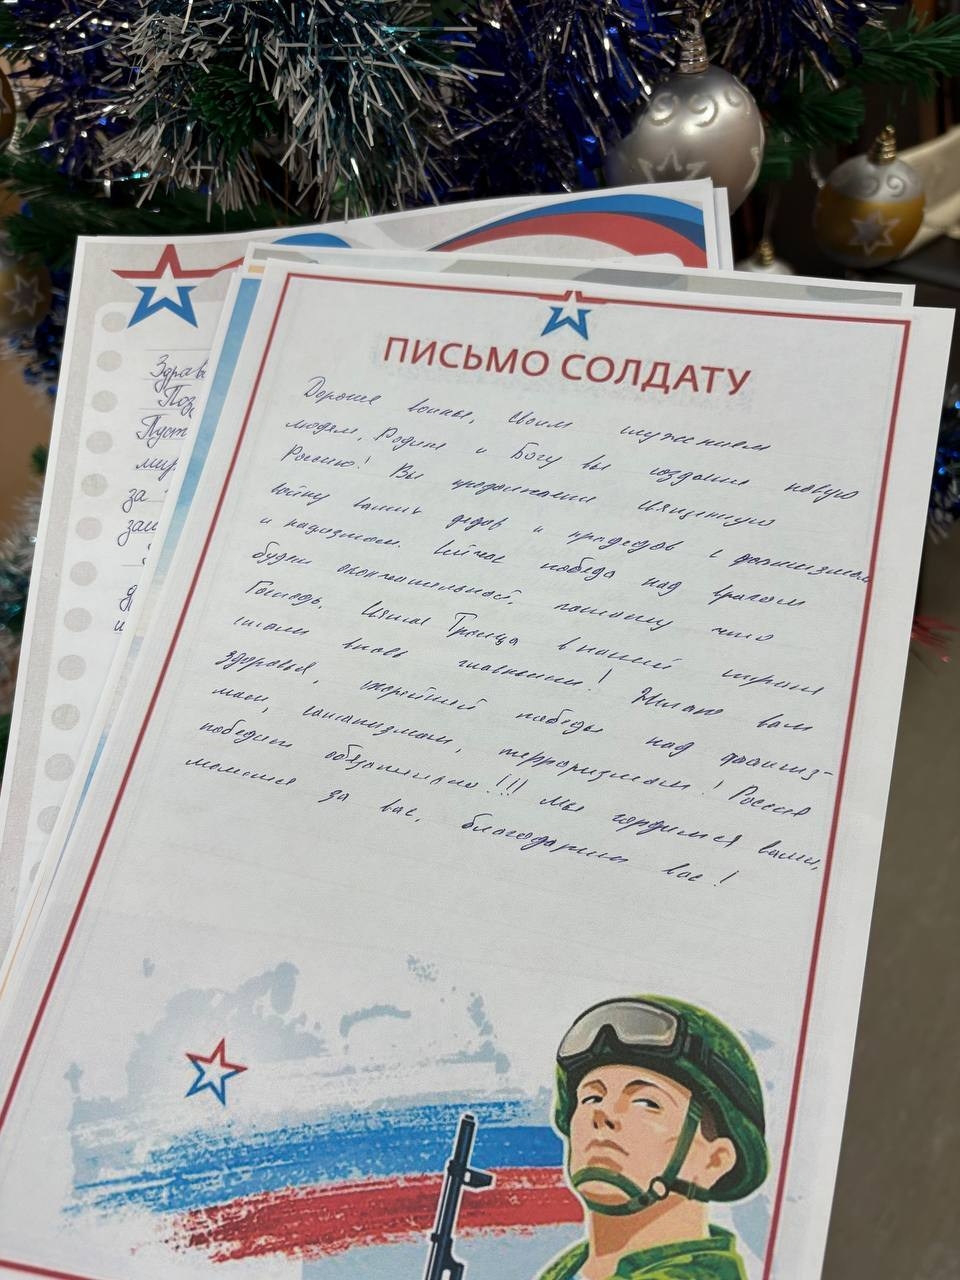 ПИСЬМО СОЛДАТУ
Дорогие воины, своим служением
людям, Родине и Богу вы создали новую
Россию! Вы продолжили священную
войну наших дедов и прадедов с фашизмом
и нацизмом. Сейчас победа над врагом
будет окончательной, потому что
Господь, Святая Троица в нашей стране
стали вновь главными! Желаю вам
здоровья, скорейшей победы над фашиз-
мом, сатанизмом, терроризмом! Россия
победит обязательно!!! Мы гордимся вами,
молимся за вас, благодарим вас!
Здрав
Поз
Пуст
мир
за
защ